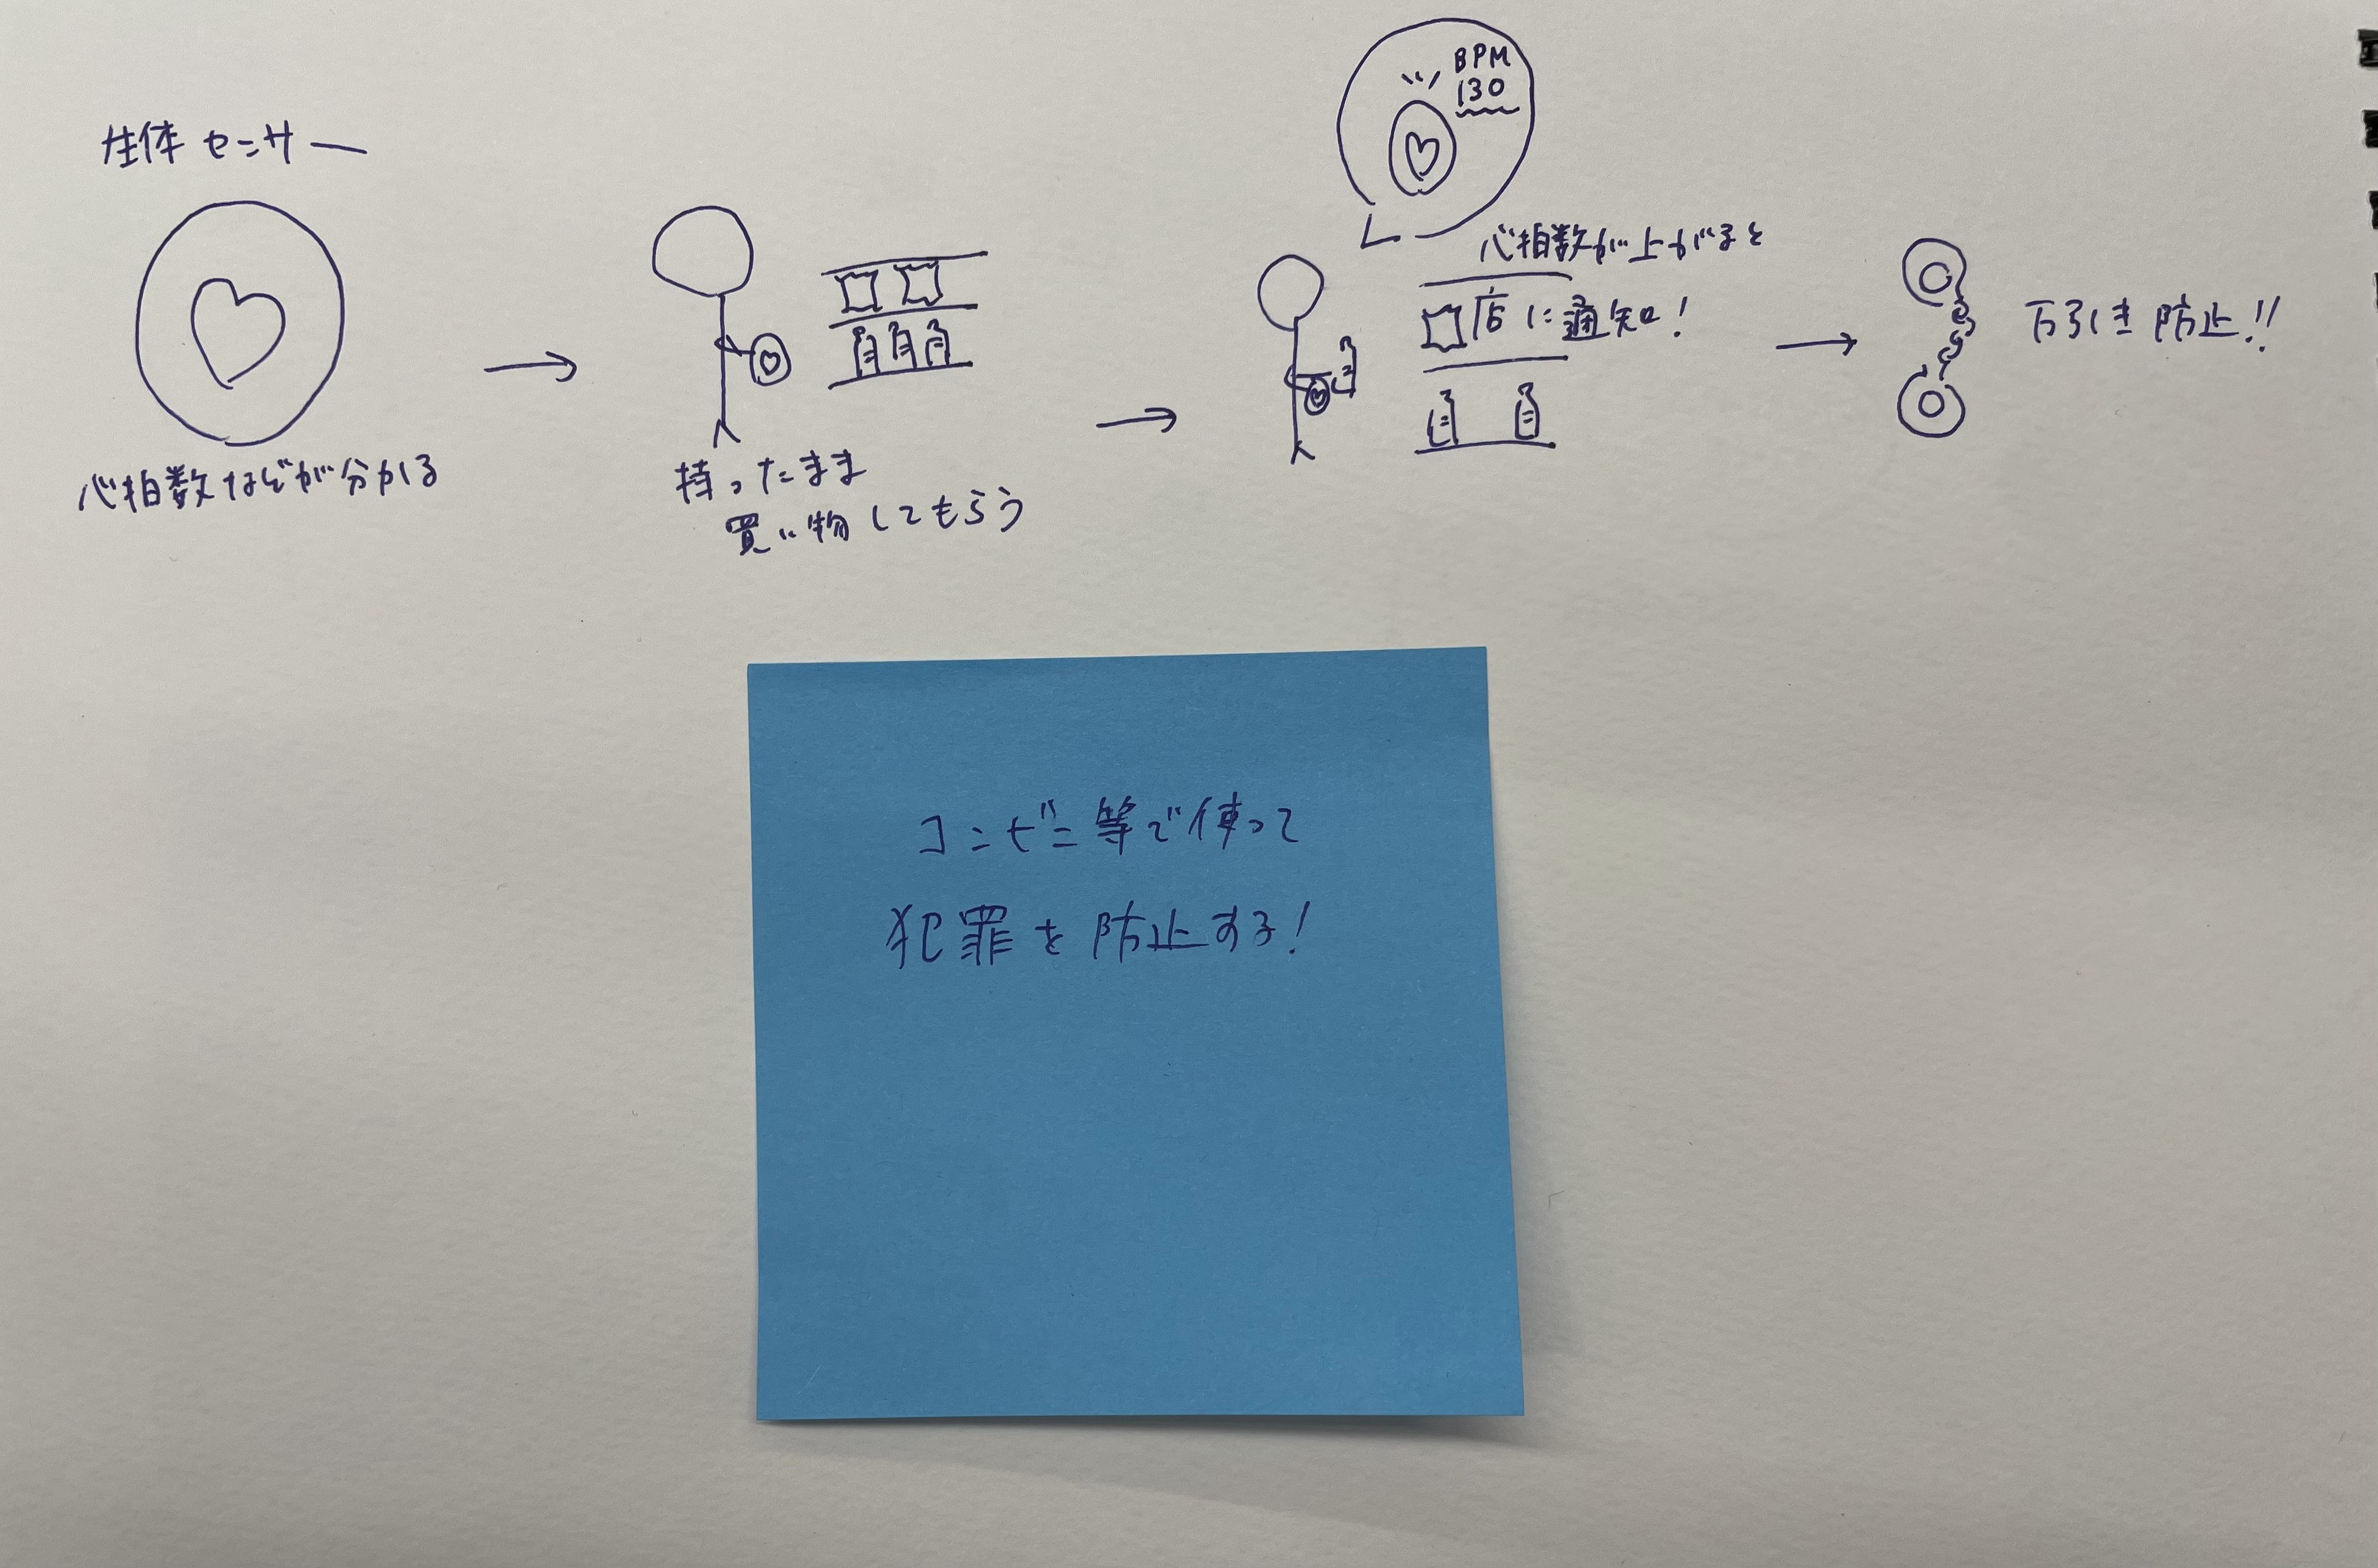 生体センサー
心拍数などが分かる
持ったまま
買い物してもらう
BPM
130
心拍数が上がると
店に通知!
万引き防止!!
コンビニ等で使って
犯罪を防止する!